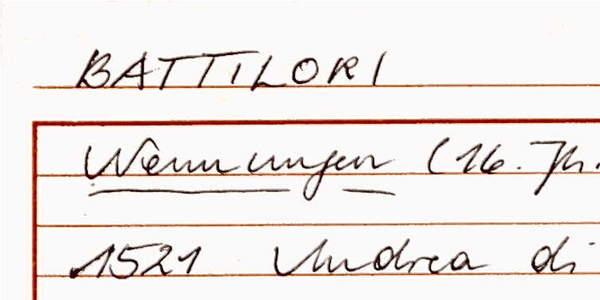 BATTILORI
Nennungen (16. Jh.
1521 Andrea di